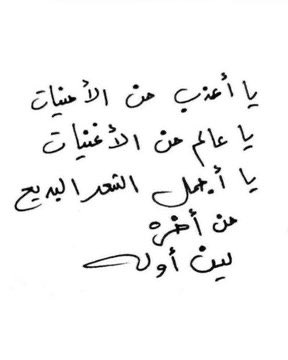 يا أعذب من الأمنيات
يا عالم من الأغنيات
يا أجمل الشعر البديع
من أخره
لين أوله